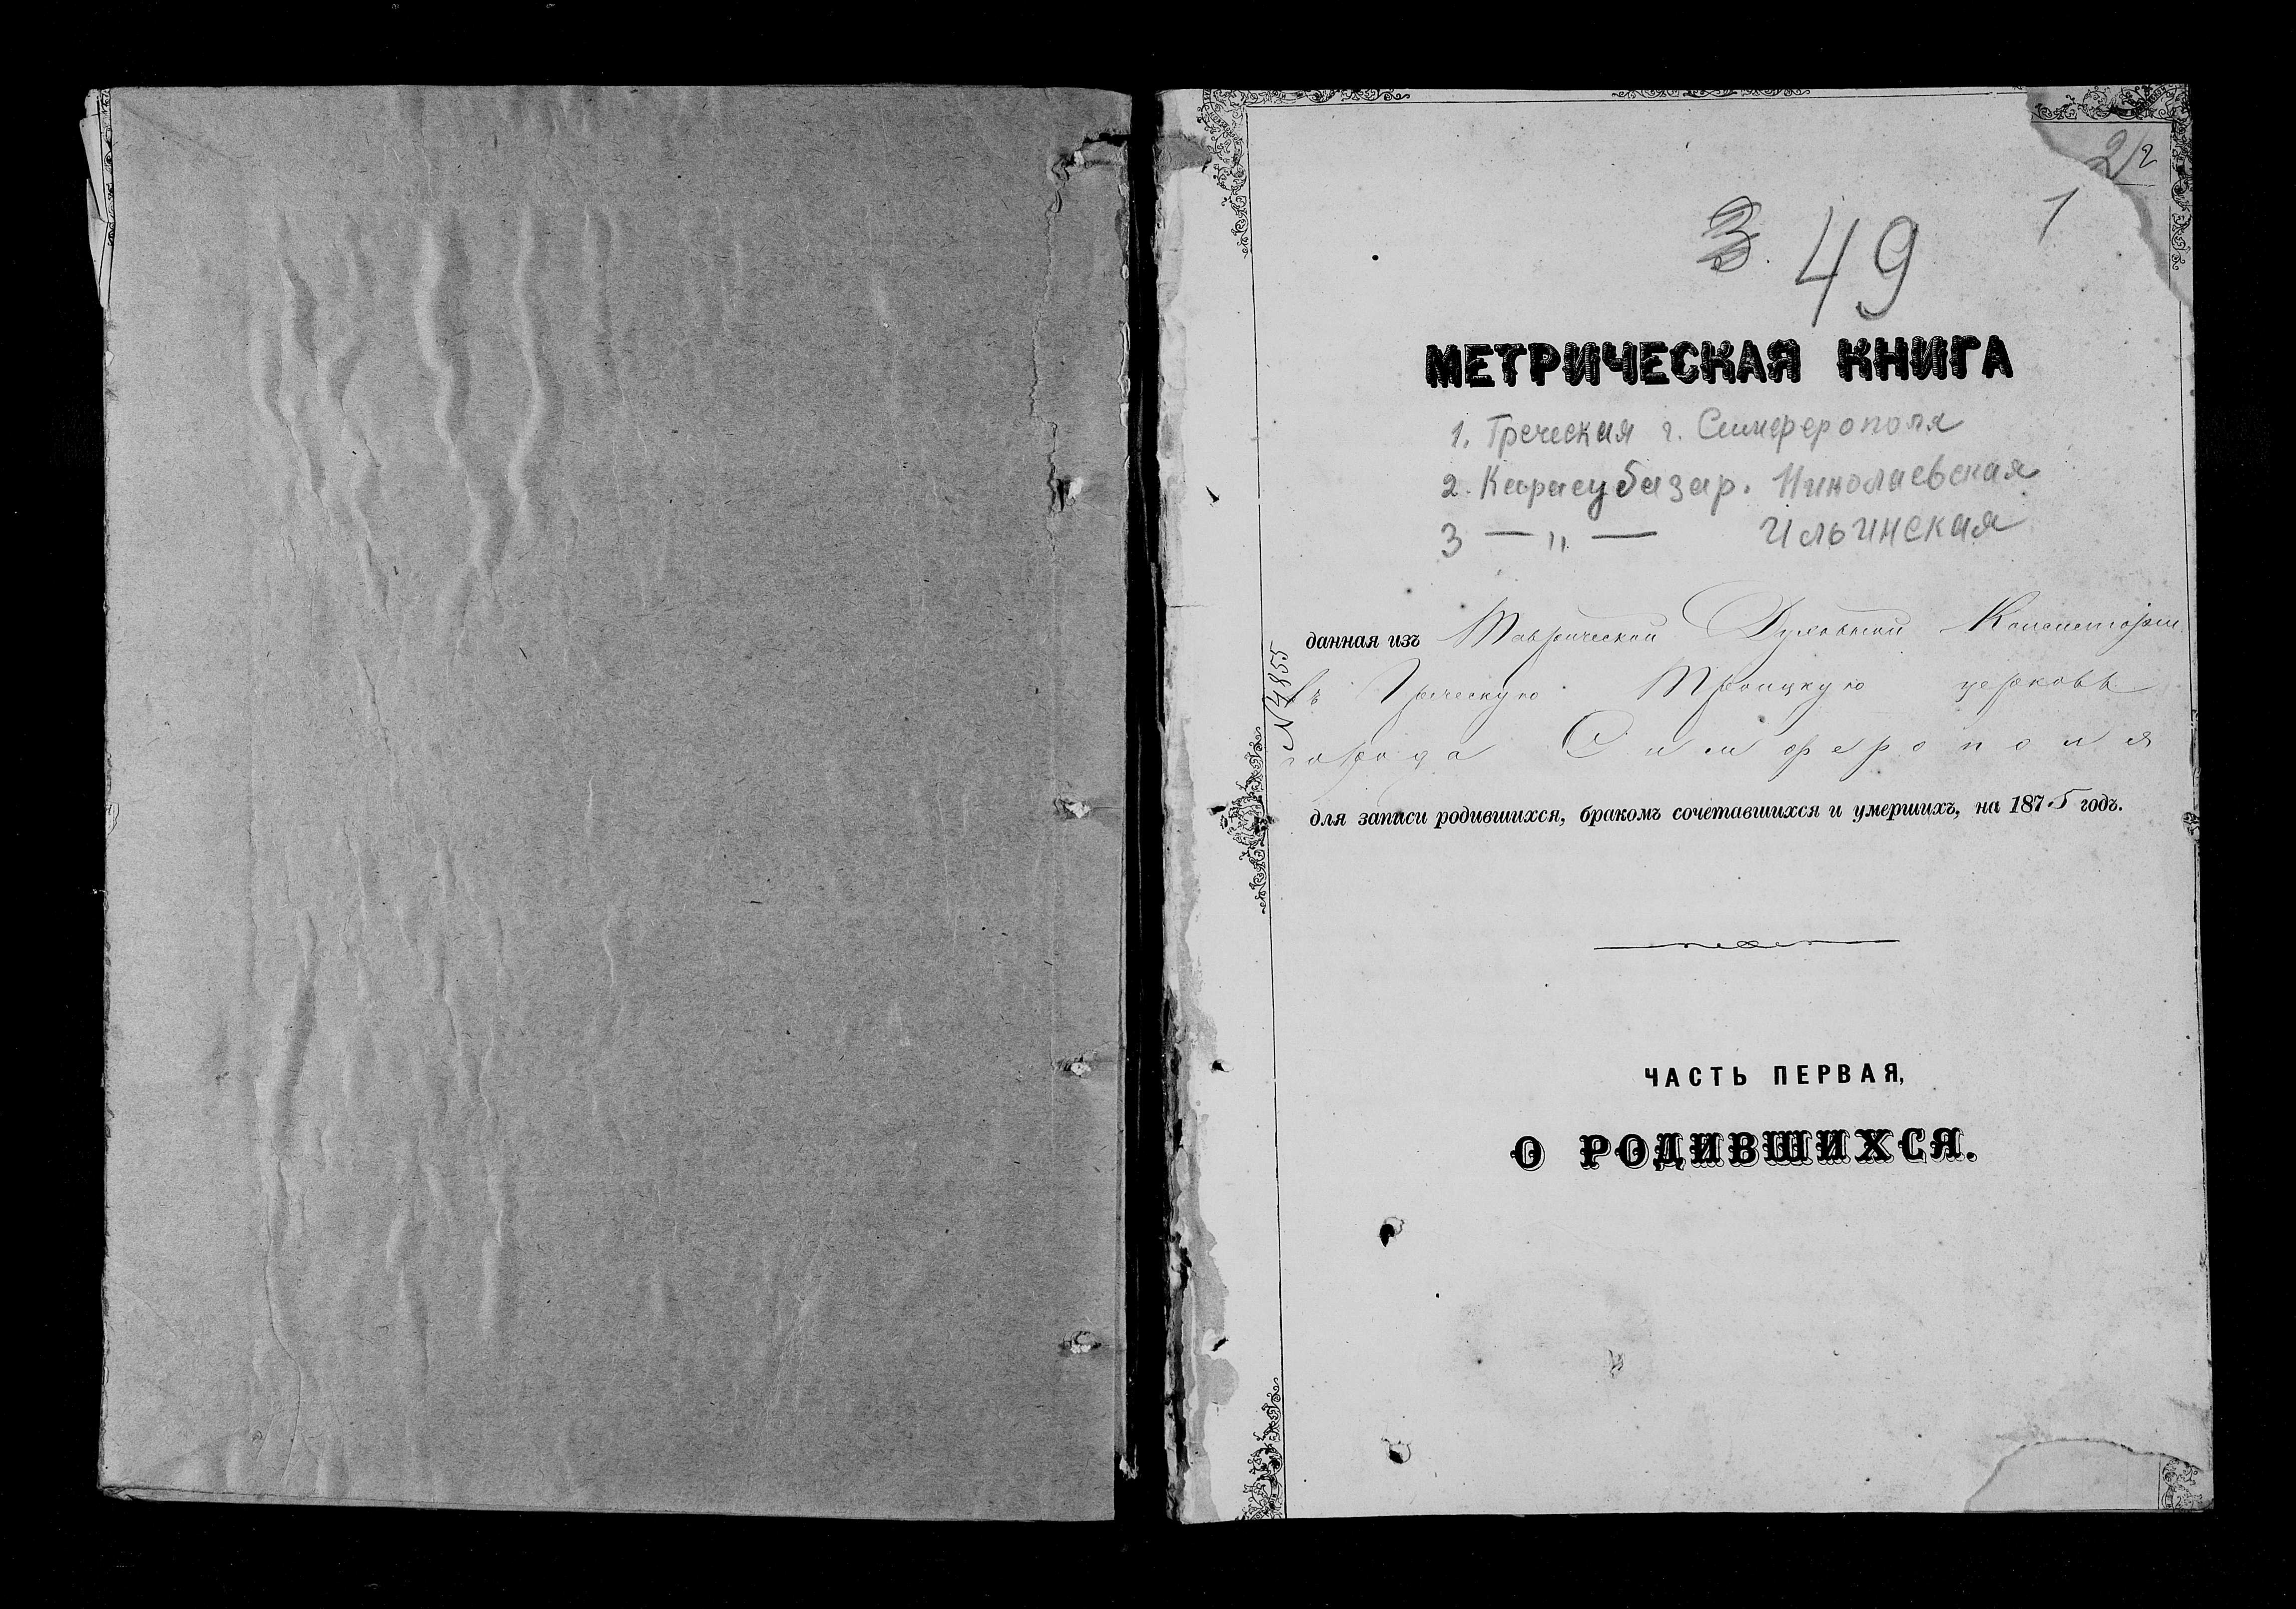 2/2
1
3. 49
МЕТРИЧЕСКАЯ КНИГА
1. Греческая г. Симферополя
2. Карасубазар. Николаевская
3 — „ — Ильинская
данная изъ Таврической Духовной Консисторіи
въ Греческую Троицкую церковь
города Симферополя
№ 4855
для записи родившихся, бракомъ сочетавшихся и умершихъ, на 1875 годъ.
ЧАСТЬ ПЕРВАЯ,
О РОДИВШИХСЯ.